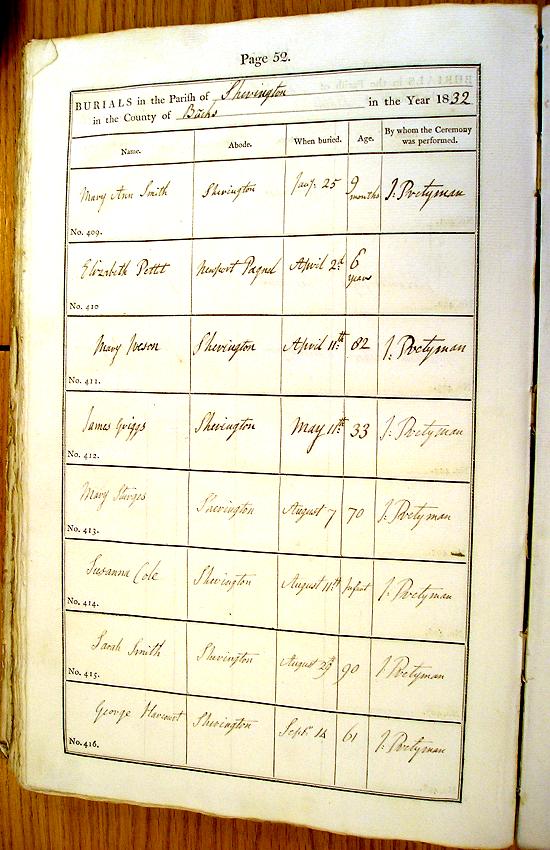 Page 52.
BURIALS in the Parish of Sherington
in the County of Bucks in the Year 1832
Name. Abode. When buried. Age. By whom the Ceremony was performed.
Mary Ann Smith Sherington Jany. 25 9 months J. Pretyman
No. 409.
Elizabeth Pettit Newport Pagnel April 2d 6 years
No. 410
Mary Sherington April 11th 82 J. Pretyman
No. 411.
James Griggs Sherington May 11th 33 J. Pretyman
No. 412.
Mary Sturges Sherington August 7 70 J. Pretyman
No. 413.
Susanna Cole Sherington August 11th Infant J. Pretyman
No. 414.
Sarah Smith Sherington August 90 J. Pretyman
No. 415.
George Harcourt Sherington Sept. 61 J. Pretyman
No. 416.